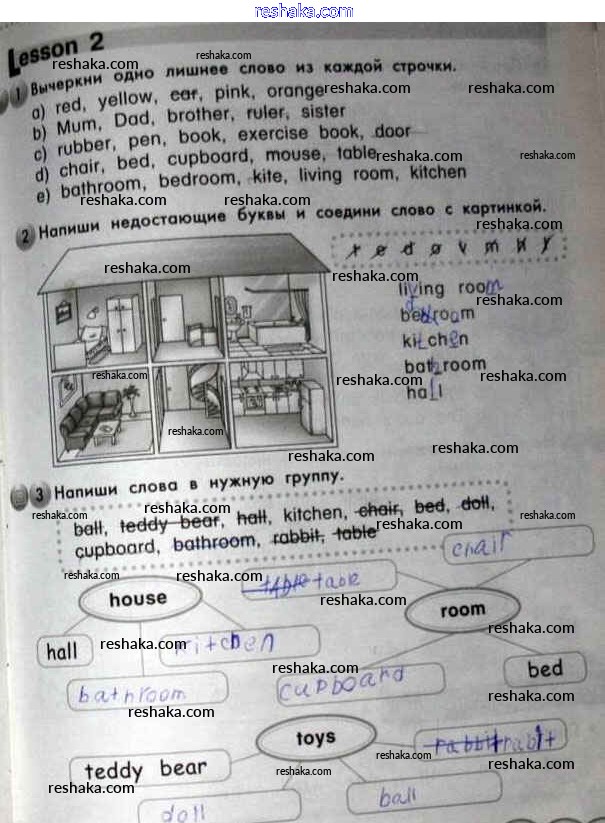 www.reshaka.com
Lesson 2
1 Вычеркни одно лишнее слово из каждой строчки.
a) red, yellow, car, pink, orange
b) Mum, Dad, brother, ruler, sister
c) rubber, pen, book, exercise book, door
d) chair, bed, cupboard, mouse, table
e) bathroom, bedroom, kite, living room, kitchen
2 Напиши недостающие буквы и соедини слово с картинкой.
living room
bedroom
kitchen
bathroom
hall
3 Напиши слова в нужную группу.
ball, teddy bear, hall, kitchen, chair, bed, doll,
cupboard, bathroom, rabbit, table
chair
table table
house
room
hall
kitchen
bed
bathroom
cupboard
toys
rabbit rabbit
teddy bear
doll
ball
reshaka.com